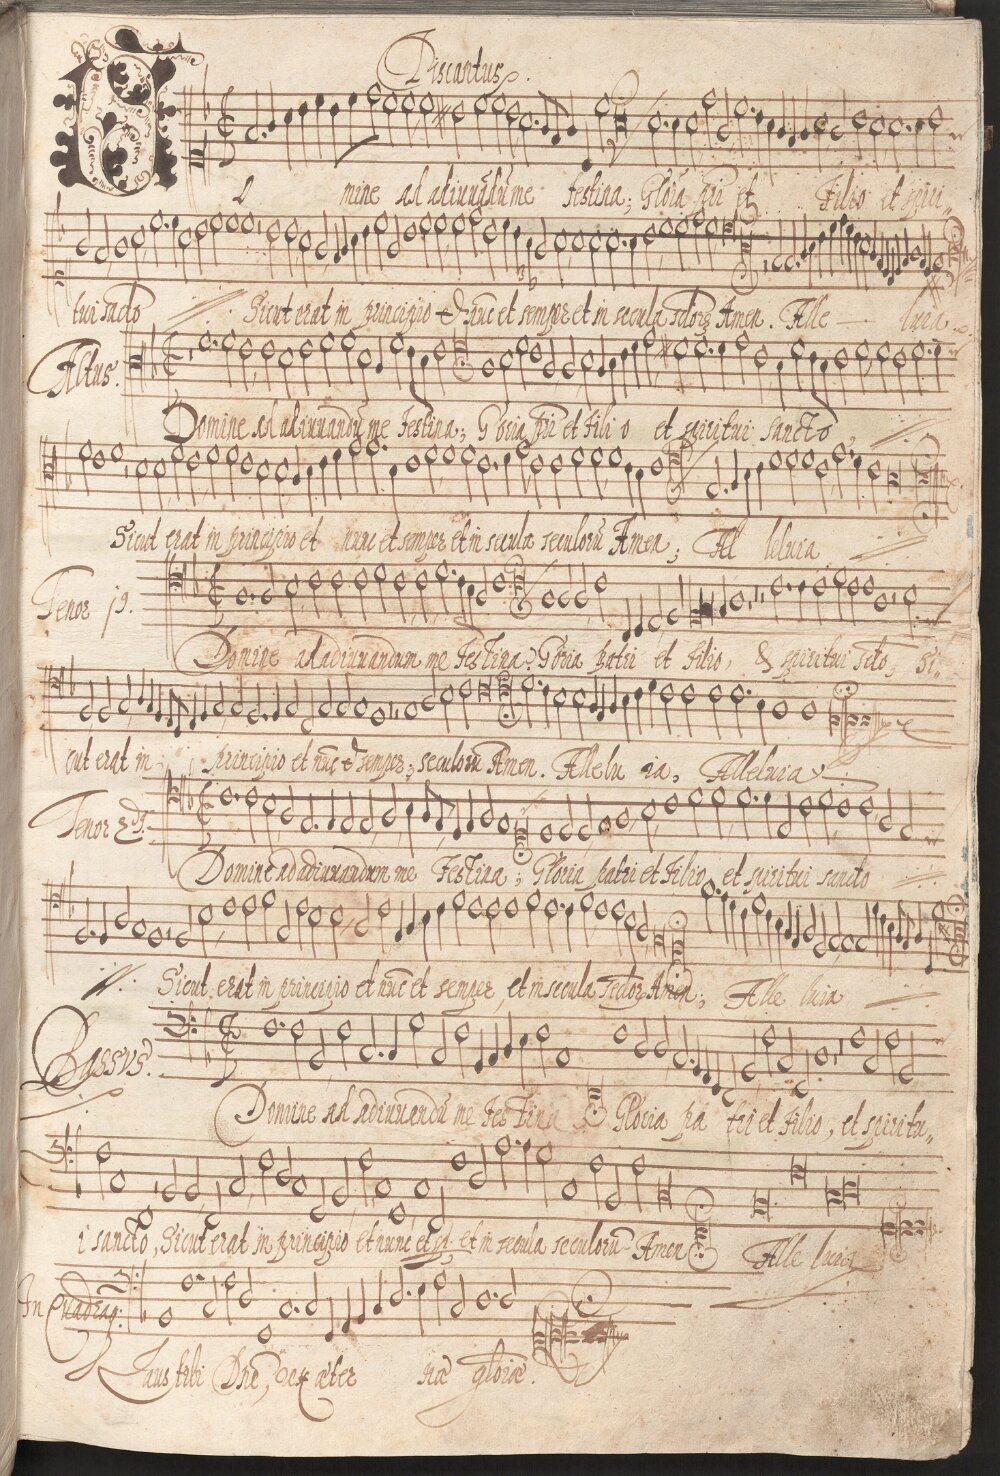 Discantus.
mine ad adiuuādū me festina; Gloria pri et Filio et spiri„
tui scto Sicut erat in principio & nūc et semper et in secula Amen. Alle luia
Altus.
Domine ad adiuuandū me festina; Gloria pri et Filio et spiritui sancto,
Sicut erat in principio et nunc et semper et in secula seculorū Amen; All leluia
Tenor 19.
Domine ad adiuuandum me festina? Gloria patri et Filio, & spiritui scto, Si„
cut erat in principio et nūc & semper; seculorū Amen. Allelu ia, Alleluia
Tenor 2dg.
Domine ad adiuuandum me festina; Gloria patri et Filio et spiritui sancto
Sicut erat in principio et nūc et semper, et in secula Amen; Alle luia
Bassvs.
Domine ad adiuuandū me festina Gloria pa tri et Filio, et spiritu„
i sancto, Sicut erat in principio et nunc et et in secula seculorū Amen Alle luia
In Quadrag:
Laus tibi Dñe, rex æter næ gloriæ.